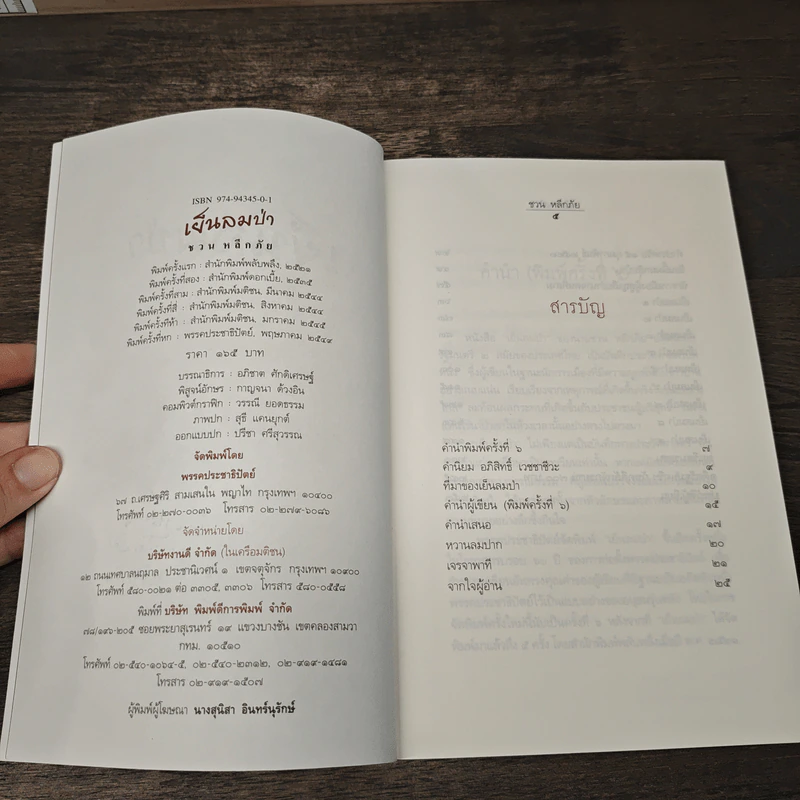 ISBN 974-94345-0-1
เย็นลมป่า
ชวน หลีกภัย
พิมพ์ครั้งแรก : สำนักพิมพ์พลับพลึง, ๒๕๒๑
พิมพ์ครั้งที่สอง : สำนักพิมพ์ดอกเบี้ย, ๒๕๓๕
พิมพ์ครั้งที่สาม : สำนักพิมพ์มติชน, มีนาคม ๒๕๔๔
พิมพ์ครั้งที่สี่ : สำนักพิมพ์มติชน, สิงหาคม ๒๕๔๔
พิมพ์ครั้งที่ห้า : สำนักพิมพ์มติชน, มกราคม ๒๕๔๕
พิมพ์ครั้งที่หก : พรรคประชาธิปัตย์, พฤษภาคม ๒๕๔๙
ราคา ๑๖๕ บาท
บรรณาธิการ : อภิชาต ศักดิเศรษฐ์
พิสูจน์อักษร : กาญจนา ด้วงอิน
คอมพิวต์กราฟิก : วรรณี ยอดธรรม
ภาพปก : สุธี แคนยุกต์
ออกแบบปก : ปรีชา ศรีสุวรรณ
จัดพิมพ์โดย
พรรคประชาธิปัตย์
๖๗ ถ.เศรษฐศิริ สามเสนใน พญาไท กรุงเทพฯ ๑๐๔๐๐
โทรศัพท์ ๐๒-๒๗๐-๐๐๓๖ โทรสาร ๐๒-๒๗๙-๖๐๘๖
จัดจำหน่ายโดย
บริษัทงานดี จำกัด (ในเครือมติชน)
๑๒ ถนนเทศบาลนฤมาล ประชานิเวศน์ ๑ เขตจตุจักร กรุงเทพฯ ๑๐๙๐๐
โทรศัพท์ ๕๘๐-๐๐๒๑ ต่อ ๓๓๐๕, ๓๓๐๖ โทรสาร ๕๘๐-๐๕๕๘
พิมพ์ที่ บริษัท พิมพ์ดีการพิมพ์ จำกัด
๗๘/๑๙๖-๒๐๕ ซอยพระยาสุเรนทร์ ๑๙ แขวงบางชัน เขตคลองสามวา
กทม. ๑๐๕๑๐
โทรศัพท์ ๐๒-๕๔๐-๑๐๖๔-๕, ๐๒-๕๔๐-๒๓๑๒, ๐๒-๙๑๙-๑๔๘๑
โทรสาร ๐๒-๙๑๙-๑๕๐๗
ผู้พิมพ์ผู้โฆษณา นางสุนิสา อินทร์นุรักษ์
ชวน หลีกภัย
๕
สารบัญ
คำนำพิมพ์ครั้งที่ ๖ ๗
คำนิยม อภิสิทธิ์ เวชชาชีวะ ๙
ที่มาของเย็นลมป่า ๑๐
คำนำผู้เขียน (พิมพ์ครั้งที่ ๖) ๑๕
คำนำเสนอ ๑๗
หวานลมปาก ๒๐
เจรจาพาที ๒๑
จากใจผู้อ่าน ๒๕